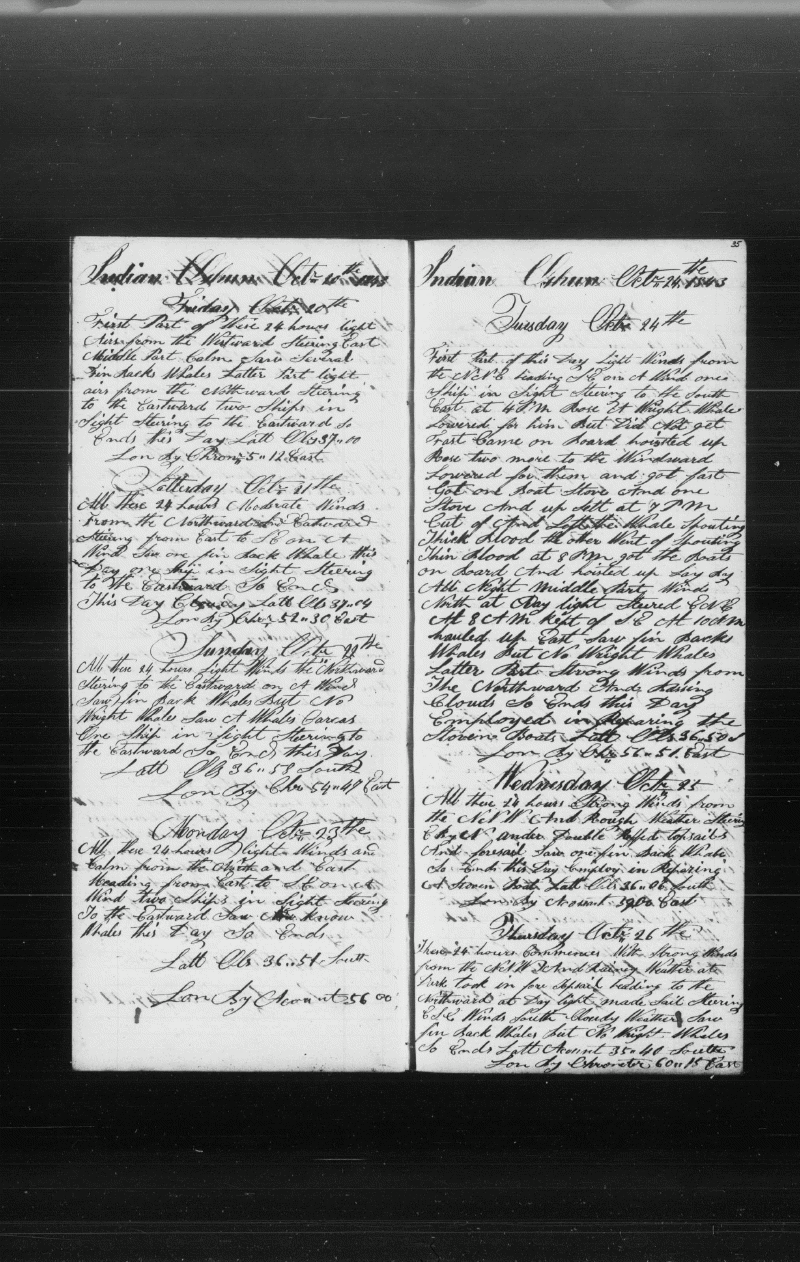 Indian Oshun Octr 20th 1843
Friday Octr 20th
First Part of these 24 hours light
Airs from the Westward Steering East
Middle Part Calm Saw Several
Fin Back Whales Latter Part light
airs from the Northward Steering
to the Eastward two Ships in
Sight Steering to the Eastward So
Ends this Day Latt Obs 37"00
Lon By Chron 5"12 East
Satterday Octr 21th
All these 24 hours Moderate Winds
From the Northward And Eastward
Steering from East to S E on A
Wind Saw one fin Back Whale this
Day one Ship in Sight Steering
to the Eastward So Ends
This Day Latt Obs 37"04
Lon By Chro 52"30 East
Sunday Octr 22th
All these 24 hours Light Winds the Northward
Steering to the Eastward on A Wind
Saw fin Back Whales But No
Wright Whales Saw A Whales Carcas
One Ship in Sight Steering to
the Eastward So Ends this Day
Latt Obs 36"53 South
Lon By Chro 54"49 East
Monday Octr 23th
All these 24 hours light Winds and
Calm from the North and East
Heading from East to S E on A
Wind two Ships in Sight Steering
To the Eastward Saw know
Whales this Day So Ends
Latt Obs 36"51 South
Lon By Acount 56 00
35
Indian Oshun Octr 24th 1843
Tuesday Octr 24th
First Part of this Day Light Winds from
the N N E heading S E on A Wind one
Ship in Sight Steering to the South
East at 4 P M Rose A Wright Whale
Lowered for him But Did Not get
Fast Came on Board hoisted up
Rose two more to the Windward
Lowered for them and got fast
Got one Boat Stove And one
Stove And up Sett at 7 P M
Cut of And Left the Whale Spouting
Thick Blood the other Went of Spouting
Thin Blood at 8 P M got the Boats
on Board And hoisted up Lay By
All Night Middle Part Winds
North at Day light Steered E N E
At 8 A M Kept of S E At 10 A M
hauled up East Saw fin Backs
Whales But No Wright Whales
Latter Part Strong Winds from
The Northward And Raising
Clouds So Ends this Day
Employed in Reparing the
Stoven Boats Latt Obs 36"50 S
Lon By Chr 56"51 East
Wednesday Octr 25
All these 24 hours Strong Winds from
the N N W And Rough Weather Steering
E By N under Double Reffed topsails
And foresail Saw one fin Back Whale
So Ends this Day Employ in Reparing
A Stoven Boat Latt Obs 36"06 South
Lon By Acount 59"00 East
Thursday Octr 26th
These 24 hours Commences With Strong Winds
from the N N W And Rainey Weather at
Dark took in fore topsail heading to the
Northward at Day light made Sail Steering
E S E Winds South Cloudy Weather Saw
fin Back Whales But No Wright Whales
So Ends Latt Acount 35"40 South
Lon By Chrometr 60"15 East